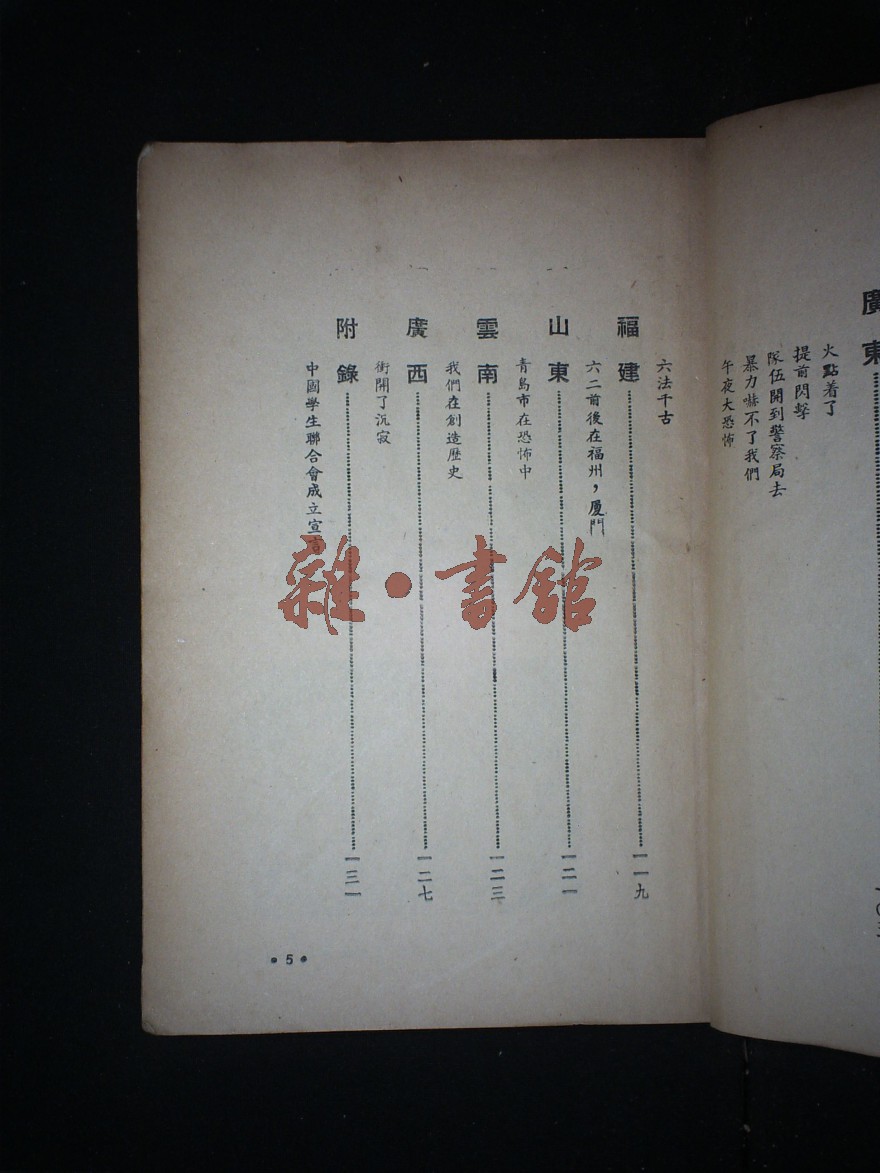 廣東
火點着了
提前閃擊
隊伍開到警察局去
暴力嚇不了我們
午夜大恐怖
六法千古
福建 一一九
六二前後在福州，厦門
山東 一二一
青島市在恐怖中
雲南 一二三
我們在創造歷史
廣西 一二七
衝開了沉寂
附錄 一三一
中國學生聯合會成立宣言
• 5 •
雜•書館